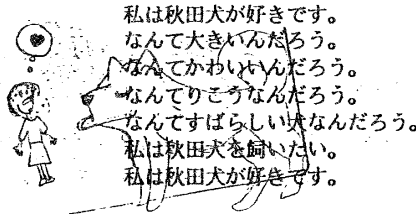 私は秋田犬が好きです。
なんて大きいんだろう。
なんてかわいいんだろう。
なんてりこうなんだろう。
なんてすばらしい犬なんだろう。
私は秋田犬を飼いたい。
私は秋田犬が好きです。